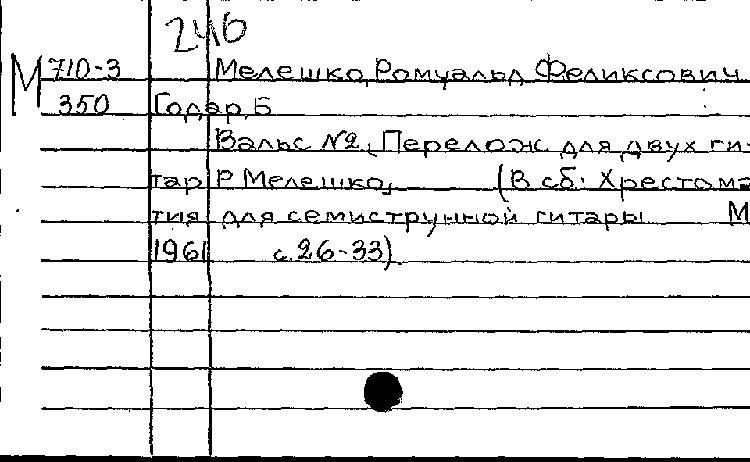 246
М 710-3 Мелешко, Ромуальд Феликсович
350 Годар, Б
Вальс №2. Перелож для двух ги-
тар Р Мелешко, (В сб: Хрестома
тия для семиструнной гитары М
1961 с. 26-33).